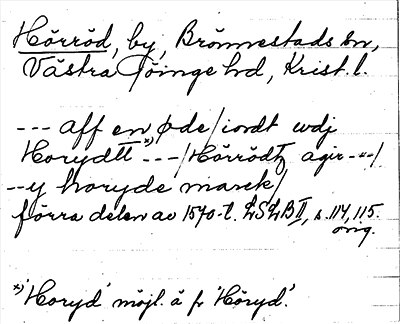 Hörröd, by, Brönnestads sn,
Västra Göinge hd, Krist. l.
--- aff en øde/iordt udj
Horydtt*) ---/Hörrödtz agir --"--/
--y horyde marck/
förra delen av 1570-t. LSLB II, s. 114, 115.
orig.
*) 'Horyd' möjl. å fr 'Höryd'.